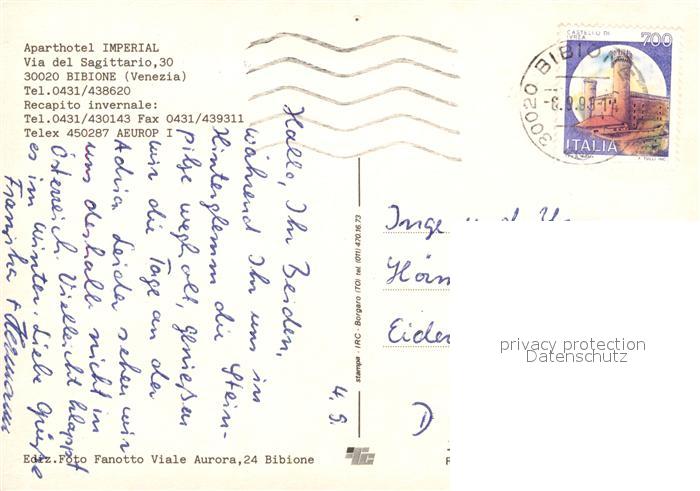 Aparthotel IMPERIAL
Via del Sagittario,30
30020 BIBIONE (Venezia)
Tel.0431/438620
Recapito invernale:
Tel.0431/430143 Fax 0431/439311
Telex 450287 AEUROP I
4. 9.
Hallo, Ihr Beiden,
während Ihr uns in
Hinterglemm die Stein-
pilze wegholt, genießen
wir die Tage an der
Adria. Leider sehen wir
uns deshalb nicht in
Österreich. Vielleicht klappt
es im Winter. Liebe Grüße
Franziska +
Ediz.Foto Fanotto Viale Aurora,24 Bibione
stampa - IRC - Borgaro (TO) tel. (011) 470.16.73
CASTELLO DI
IVREA
700
ITALIA
30020 BIBIO
Inge und
Eider
D
privacy protection
Datenschutz